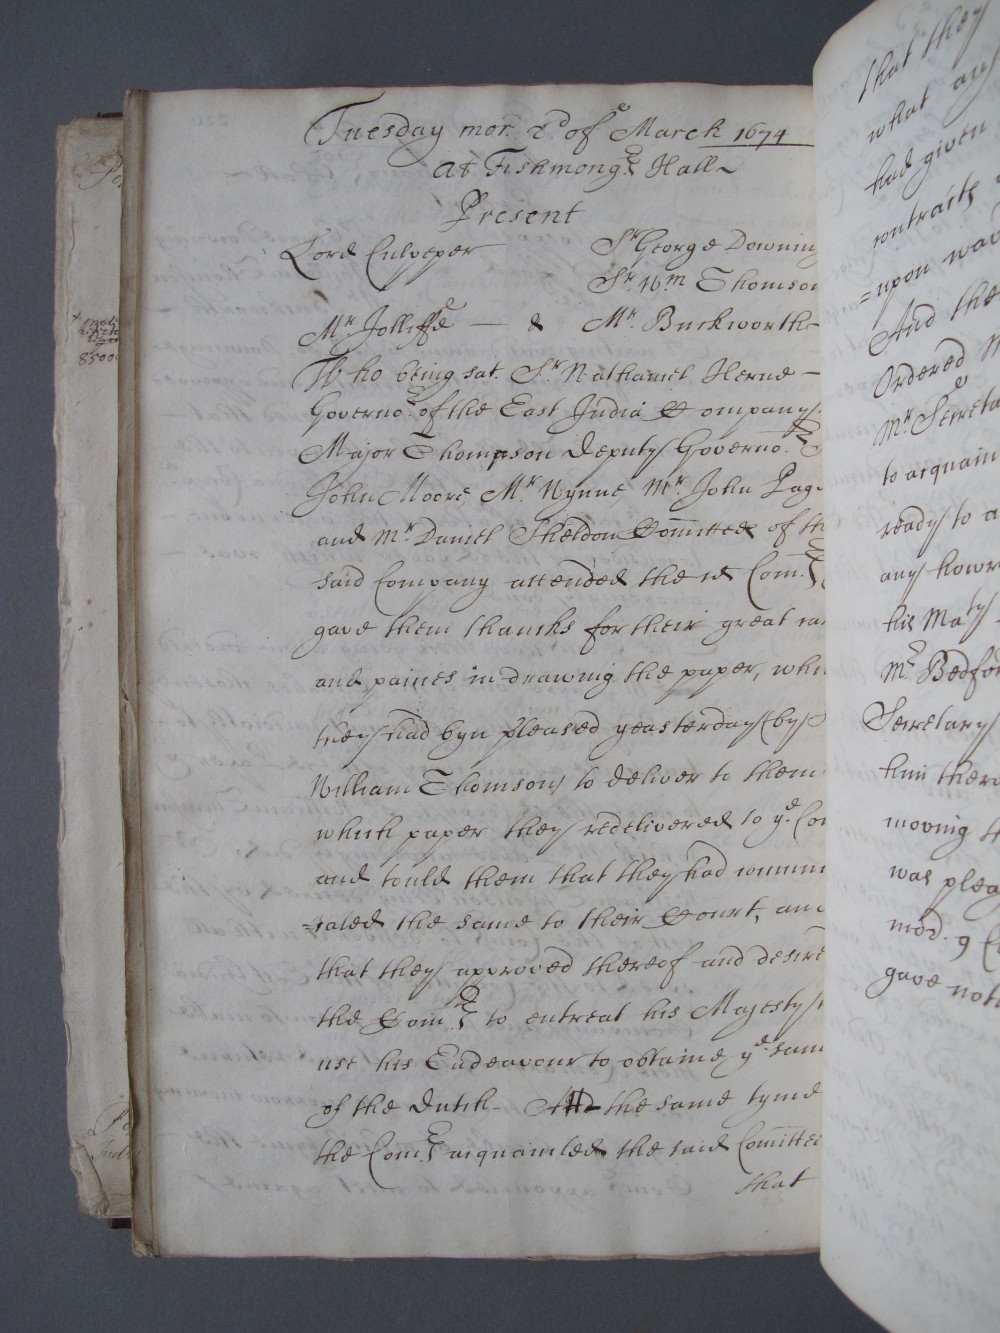 Tuesday mor. 2d of e March 1674
At Fishmong.rs Hall
Present
Lord Culpeper Sr. George Downin
Sr. Wm Thomson
Mr Jolliffe — & Mr. Buckworth
Who being sat. Sr. Nathaniel Herne —
Governo.r of the East India Company
Major Thompson Deputy Governo.r
John Moore, Mr Wynne, Mr. John Pag
and Mr Daniel Sheldon Comittee of th
said Company attended the sd Com.rs
gave them thancks for their great ca
and paines in drawing the paper, whi
they had byn pleased yeasterday (by S
William Thomson) to deliver to them
which paper they redelivered to ye. Co
and tould them that they had commu
=cated the same to their Court, an
that they approved thereof and desire
the Com.rs to entreat his Majesty t
use his Endeavour to obtaine ye. same
of the Dutch. Att the same tyme
the Com.rs acquainted the said Comittee
that
that they
what any
had given
contracts
=upon wa
And the
Ordered
Mr Secreta
to acquain
ready to a
any howr
his Maty
Mr. Bedfor
Secretary
him there
moving th
was plea
gave noti
8500